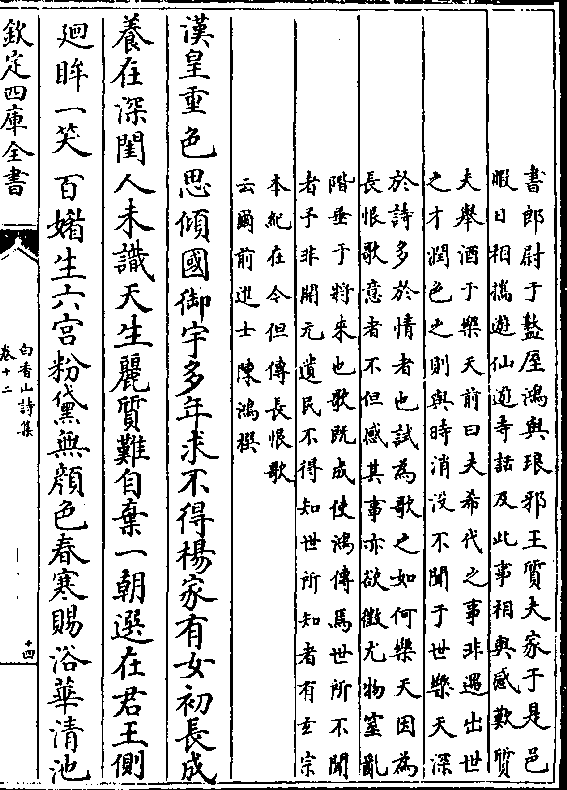 書郎尉于盩厔鴻與琅邪王質夫家于是邑
暇日相攜遊仙遊寺話及此事相與感歎質
夫舉酒于樂天前曰夫希代之事非遇出世
之才潤色之則與時消没不聞于世樂天深
於詩多於情者也試為歌之如何樂天因為
長恨歌意者不但感其事亦欲徵尤物窒亂
階垂于將來也歌既成使鴻傳焉世所不聞
者予非開元遺民不得知世所知者有玄宗
本紀在今但傳長恨歌
云爾前進士陳鴻撰
漢皇重色思傾國御宇多年求不得楊家有女初長成
養在深閨人未識天生麗質難自棄一朝選在君王側
廻眸一笑百媚生六宫粉黛無顔色春寒賜浴華清池
欽定四庫全書
白香山詩集
卷十二
十四